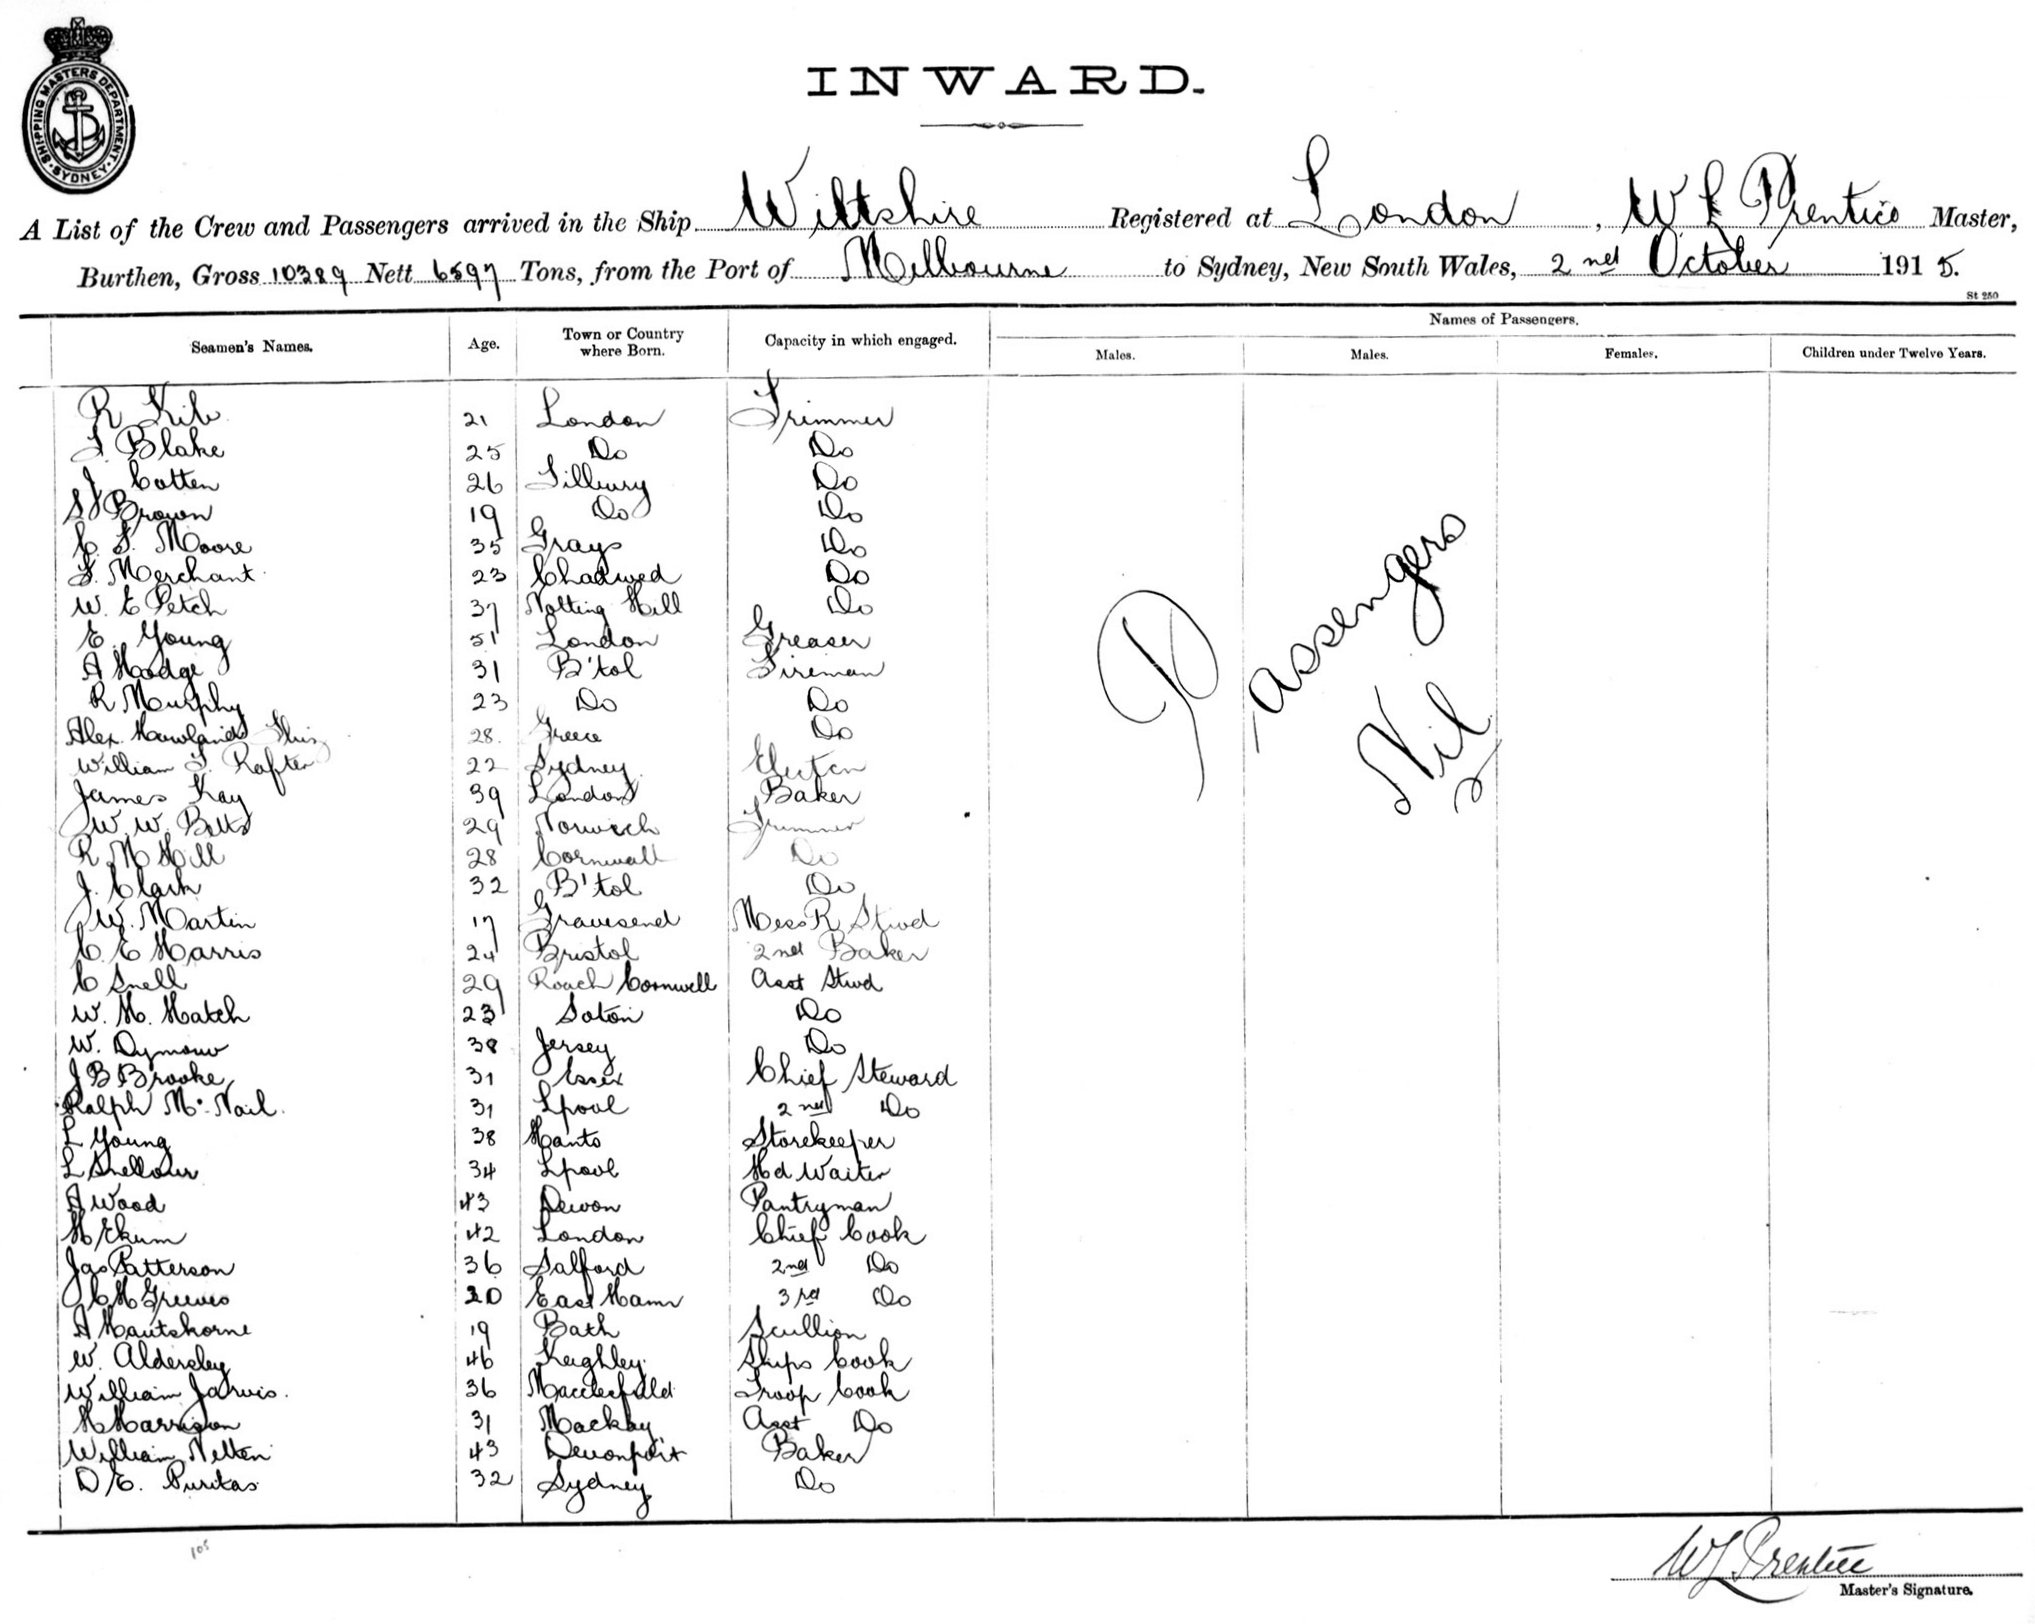 SHIPPING MASTERS DEPARTMENT. SYDNEY
INWARD.
A List of the Crew and Passengers arrived in the Ship Wiltshire Registered at London, W L Prentice Master,
Burthen, Gross 10389 Nett 6597 Tons, from the Port of Melbourne to Sydney, New South Wales, 2nd October 1915.
St 250
Seamen's Names. Age. Town or Country where Born. Capacity in which engaged. Names of Passengers.
Males. Males. Females. Children under Twelve Years.
R 21 London Trimmer
Blake 25 Do Do
J Cotten 26 Tilbury Do
Brown 19 Do Do
C. Moore 35 Grays Do
Merchant 23 Do
W. E Petch 37 Notting Hill Do
E. Young 51 London Greaser
A Hodge 31 B'tol Fireman
R Murphy 23 Do Do
Alex. 28. Greece Do
William Rafter 22 Sydney
James Kay 39 London Baker
W. W. Betts 29 Norwich Trimmer
R M Hill 28 Cornwall Do
J. Clark 32 B'tol Do
W. Martin 17 Gravesend Mess R Stwd
C. E Harris 24 Bristol 2nd Baker
C Snell 29 Roach Cornwell Asst Stwd
W. H. Hatch 23 Soton Do
W. 38 Jersey Do
J B Brooke 31 Essex Chief Steward
Ralph Mc Nail. 31 Lpool 2nd Do
L Young 38 Hants Storekeeper
L 34 Lpool Hd Waiter
A Wood 43 Devon Pantryman
H Ekum 42 London Chief Cook
Jas Patterson 36 Salford 2nd Do
C H Greeves 20 East Ham 3rd Do
A 19 Bath Scullion
W. Aldersley 46 Keighley Ships Cook
William Jarvis. 36 Macclesfield Troop Cook
H Harrison 31 Mackay Asst Do
William Netten 43 Devonport Baker
D E. Puritas 32 Sydney Do
Passengers
Nil
105
W L Prentice
Master's Signature.